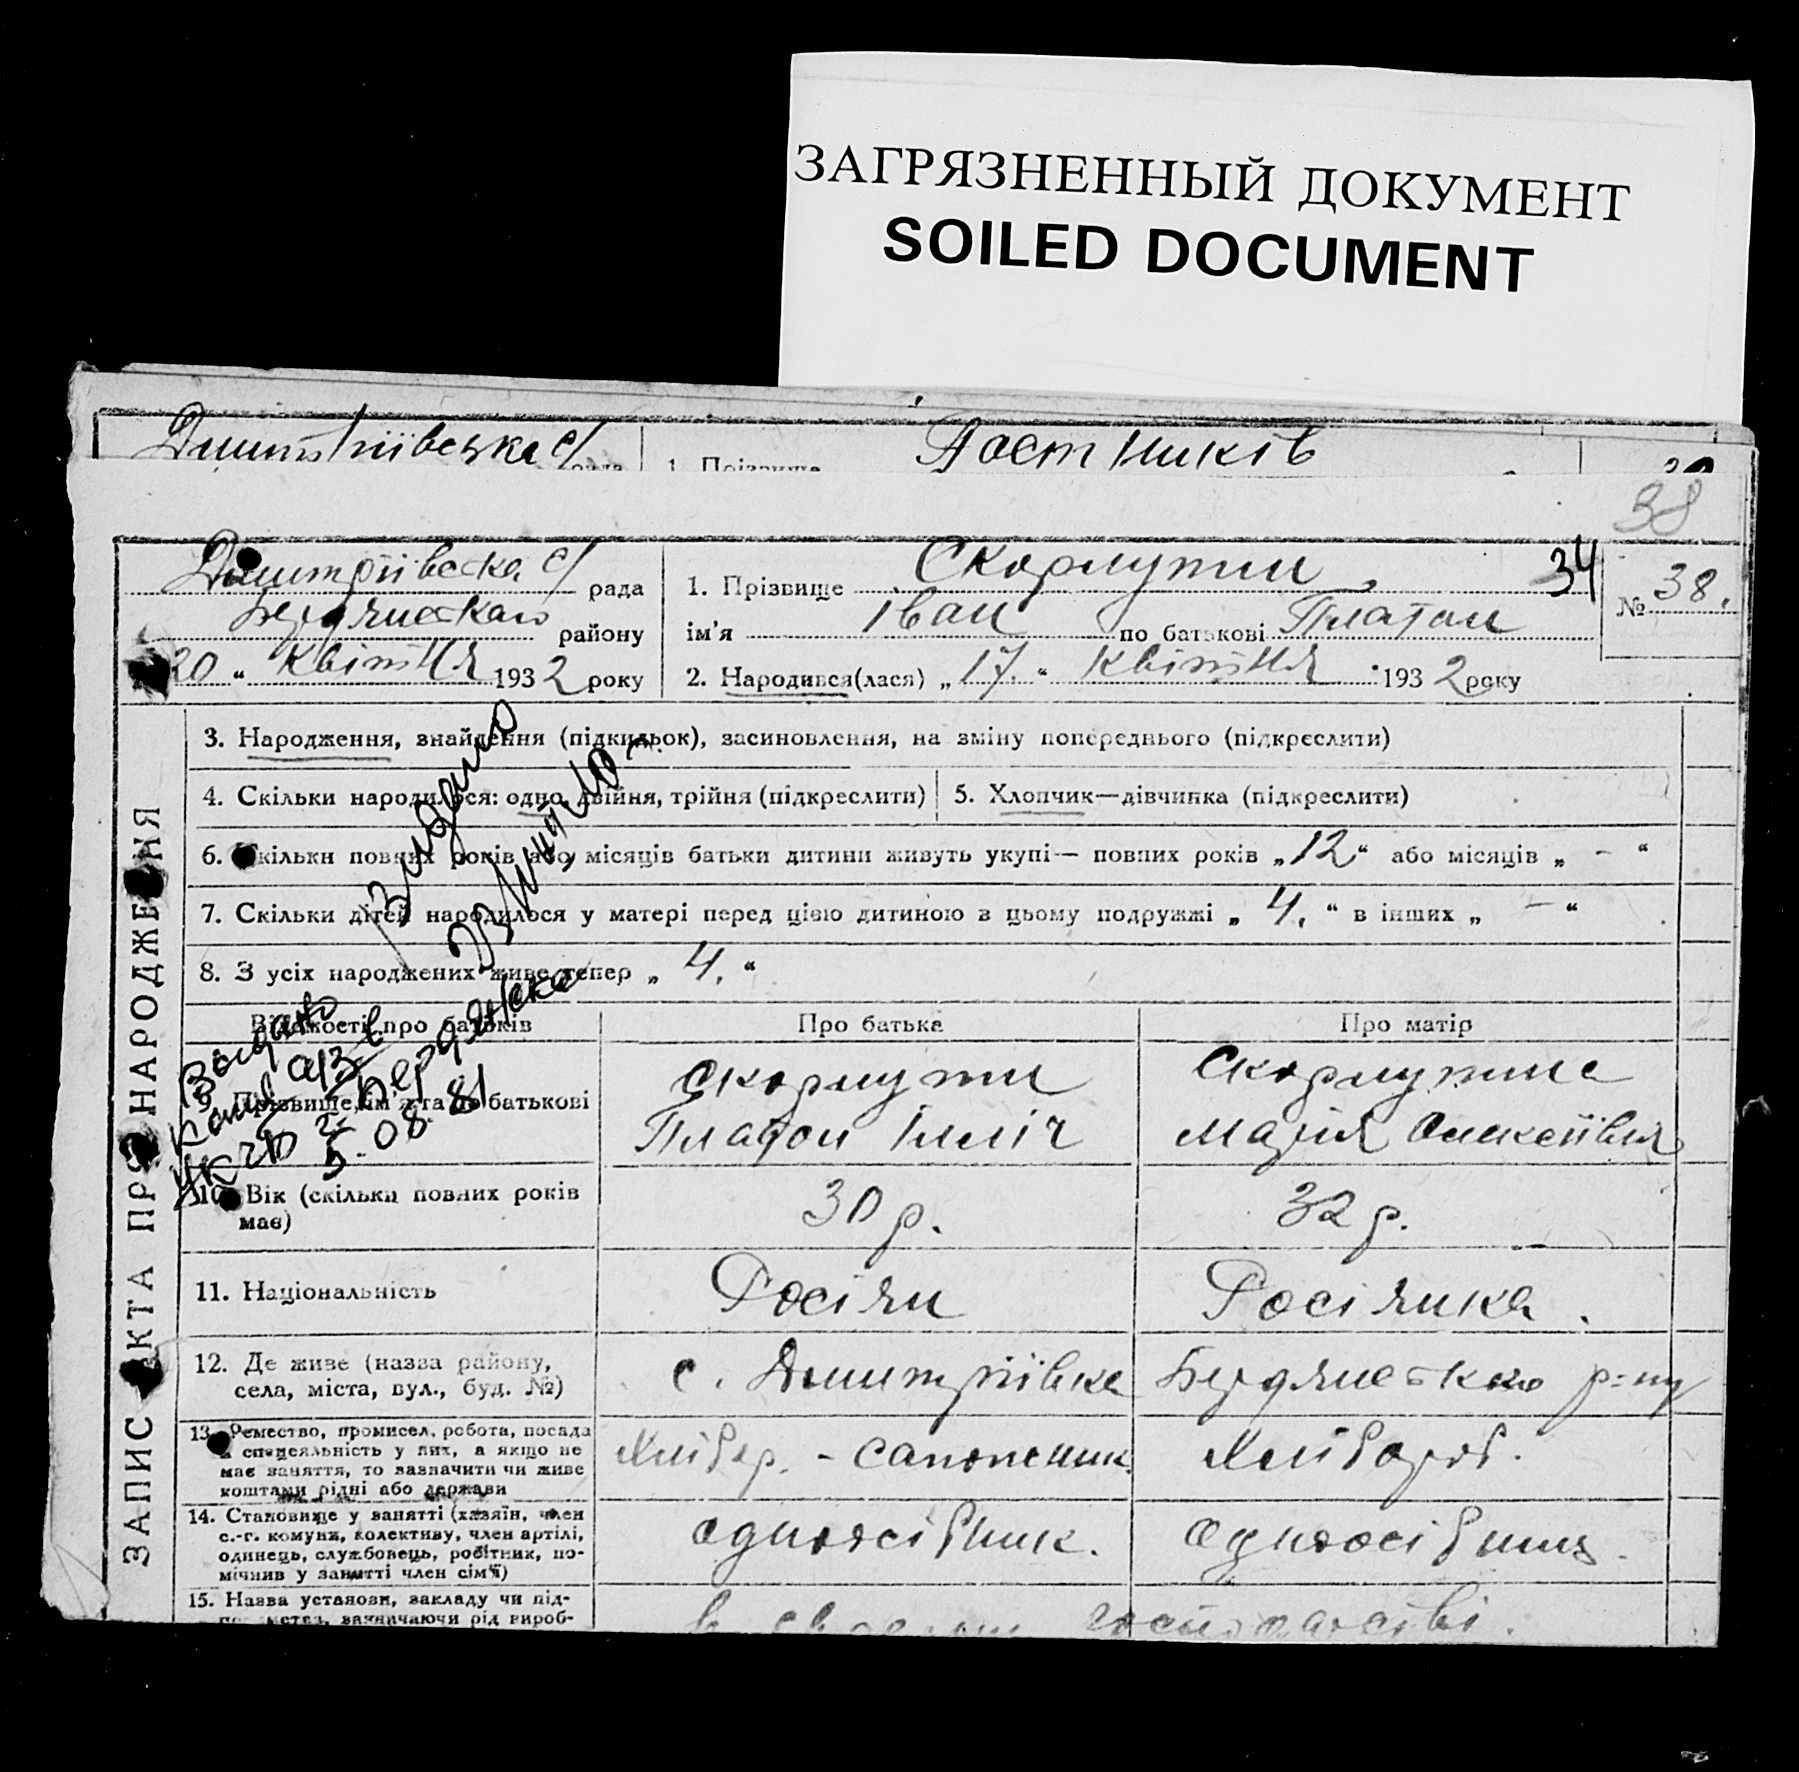 ЗАГРЯЗНЕННЫЙ ДОКУМЕНТ
SOILED DOCUMENT
Дмитріївська с/ рада
1. Прізвище Постників
38
Дмитріївська с/ рада
Бердянського району
20 " квітня 1932 року
1. Прізвище Скорлутин 34
ім'я Іван по батькові Платон
2. Народився(лася) „ 17. " квітня 1932 року
№ 38.
ЗАПИС АКТА ПРО НАРОДЖЕННЯ
3. Народження, знайдення (підкидьок), засиновлення, на зміну попереднього (підкреслити)
4. Скільки народилося: одно, двійня, трійня (підкреслити)
5. Хлопчик—дівчинка (підкреслити)
6. Скільки повних років або місяців батьки дитини живуть укупі — повних років „ 12 “ або місяців „ - “
7. Скільки дітей народилося у матері перед цією дитиною в цьому подружжі „ 4. “ в інших „ — “
8. З усіх народжених живе тепер „ 4. “
Видано
5.08.81
Відомості про батьків
Про батька
Про матір
9. Прізвище, ім'я та по батькові
Скорлутин
Платон Ілліч
Скорлутина
Марія Олексіївна
10. Вік (скільки повних років має)
30 р.
32 р.
11. Національність
Росіян
Росіянка.
12. Де живе (назва району,
села, міста, вул., буд. №)
с. Дмитріївка Бердянського р-ну
13. Ремество, промисел, робота, посада
й спеціяльність у них, а якщо не
має заняття, то зазначити чи живе
коштами рідні або держави
Хлібор. - сапожник.
Хлібороб.
14. Становище у занятті (хазяїн, член
с.-г. комуни, колективу, член артілі,
одинець, службовець, робітник, по-
мічнив у занятті член сім'ї)
одноосібник.
одноосібниця.
15. Назва установи, закладу чи під-
приємства, зазначаючи рід вироб-
в своєму господарстві.